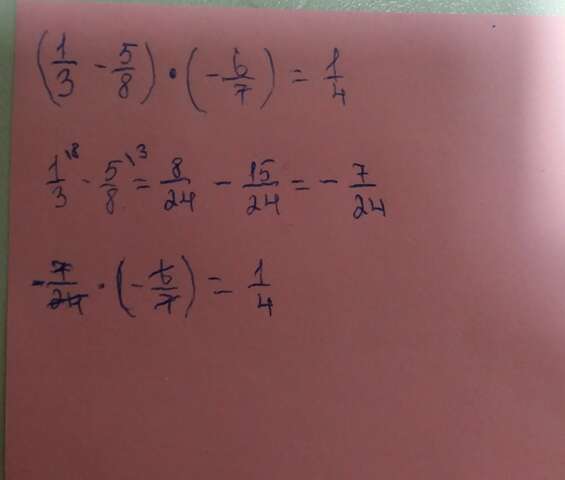 (1/3 - 5/8) · (-6/7) = 1/4
1/3\8 - 5/8\3 = 8/24 - 15/24 = - 7/24
-7/24 · (-6/7) = 1/4